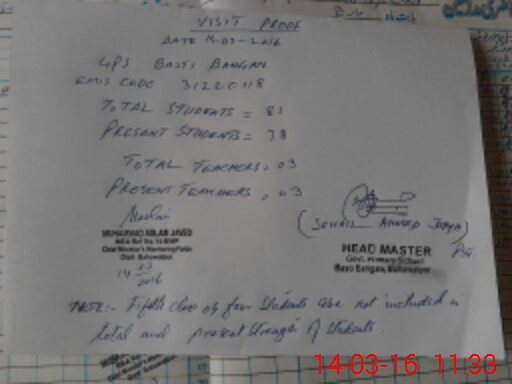 VISIT PROOF
DATE 14-03-2016
GPS BASTI BAHGAN
EMIS CODE 31220118
TOTAL STUDENTS = 81
PRESENT STUDENTS = 78
TOTAL TEACHERS = 03
PRESENT TEACHERS = 03
MUHAMMAD ASLAM JAVED
Chief Minister's Monitoring Force
Distt: Bahawalpur
14 03
2016
(SOHAIL AHMED JOYA)
HEAD MASTER
Govt. Primary School
Basti Bangan, Bahawalpur
NOTE:- Fifth class of four students are not included in
total and present strength of students.
14-03-16 11:33